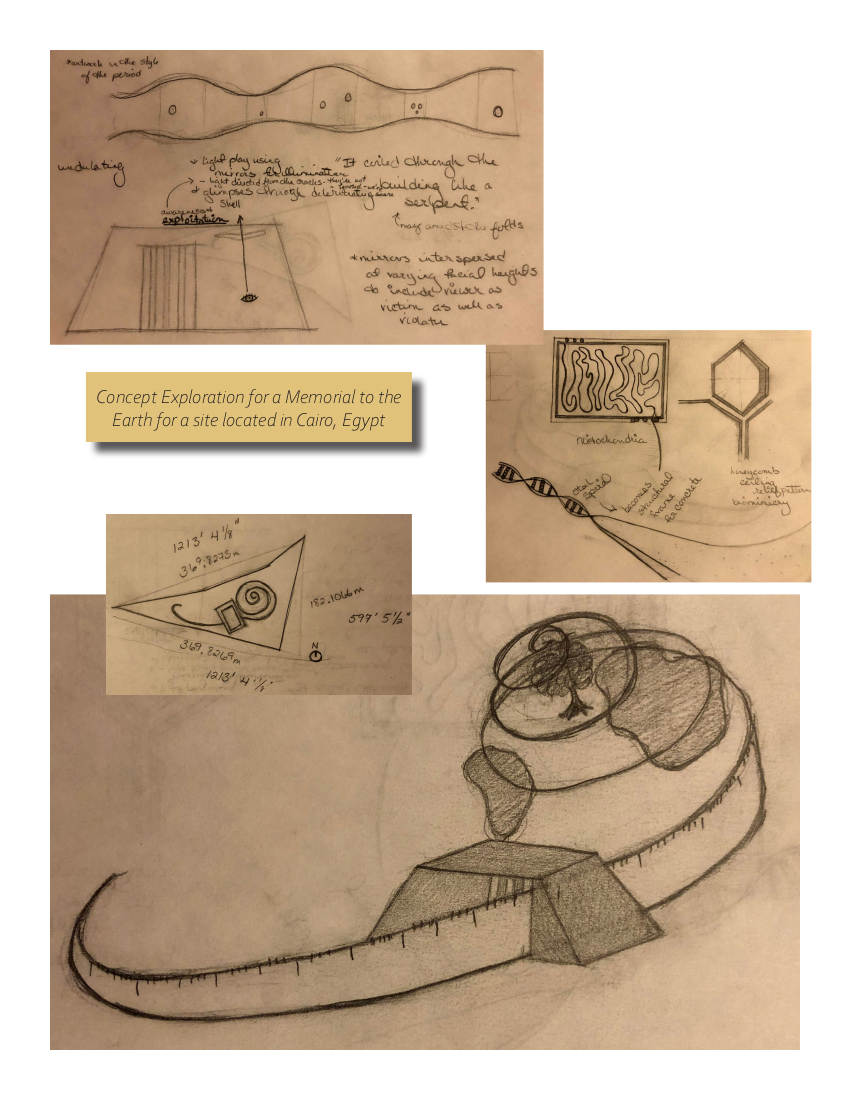 of the period
undulating
* light play using
mirrors & illumination
* glimpses through deteriorating
shell
awareness of
exploitation
"It coiled through the
building like a
serpent."
* mirrors interspersed
at varying facial heights
to include viewer as
victim as well as
violator
Concept Exploration for a Memorial to the
Earth for a site located in Cairo, Egypt
mitochondria
becomes
structural
frame
for concrete
honeycomb
ceiling
relief pattern
biomimicry
1213' 4 1/8"
369.8273m
182.1066m
597' 5 1/2"
N
369.8269m
1213' 4